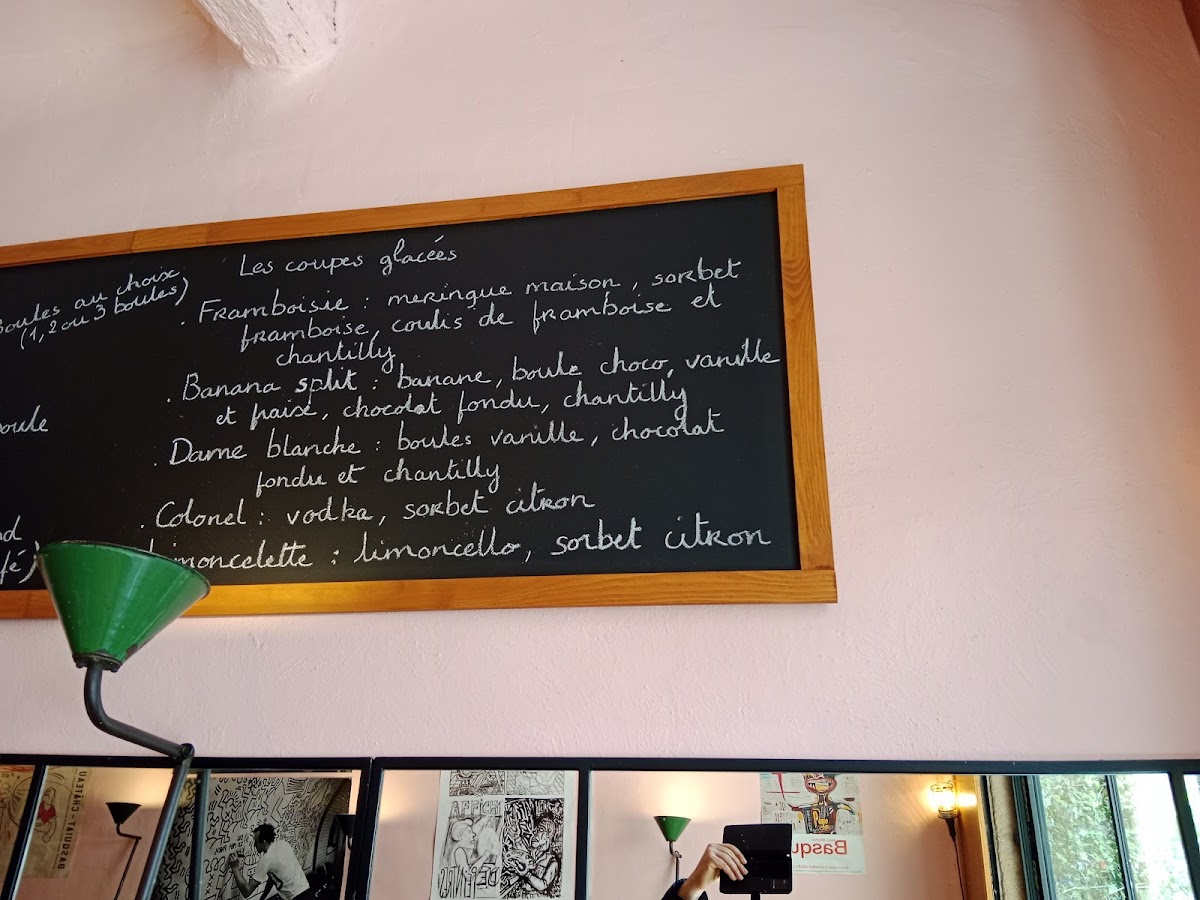 Boules au choix
(1, 2 ou 3 boules)
boule
Les coupes glacées
. Framboisie : meringue maison, sorbet
framboise, coulis de framboise et
chantilly
. Banana split : banane, boule choco, vanille
et fraise, chocolat fondu, chantilly
. Dame blanche : boules vanille, chocolat
fondu et chantilly
. Colonel : vodka, sorbet citron
Limoncelette : limoncello, sorbet citron
BASQUIAT - CHÂTEAU
Basqu